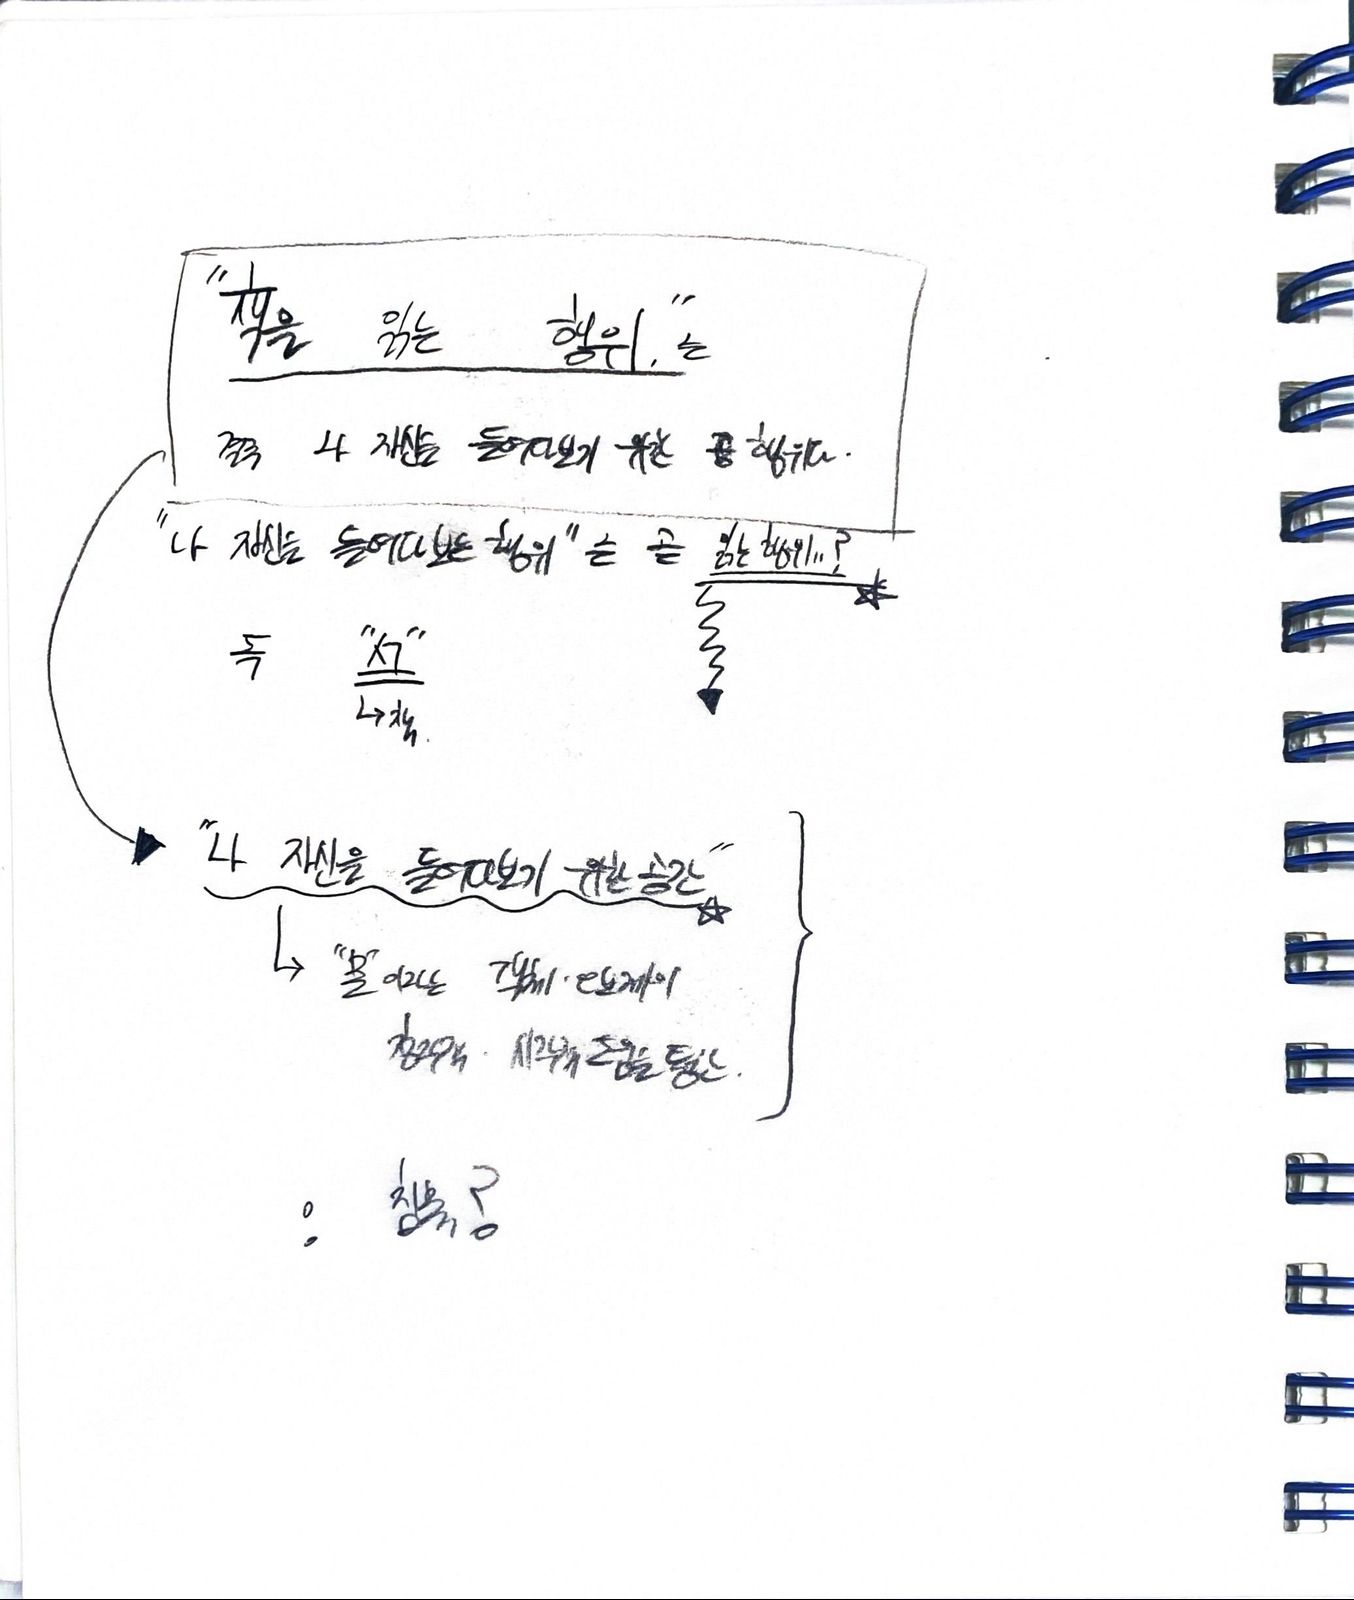 "책을 읽는 행위."는
결국 나 자신을 들여다보기 위한 행위다.
"나 자신을 들여다보는 행위"는 곧 읽는 행위..?
독 "서"
↳ 책.
"나 자신을 들여다보기 위한 공간"
↳ "물"이라는 객체·오브제의
청각적·시각적 도움을 통한.
: 침묵?